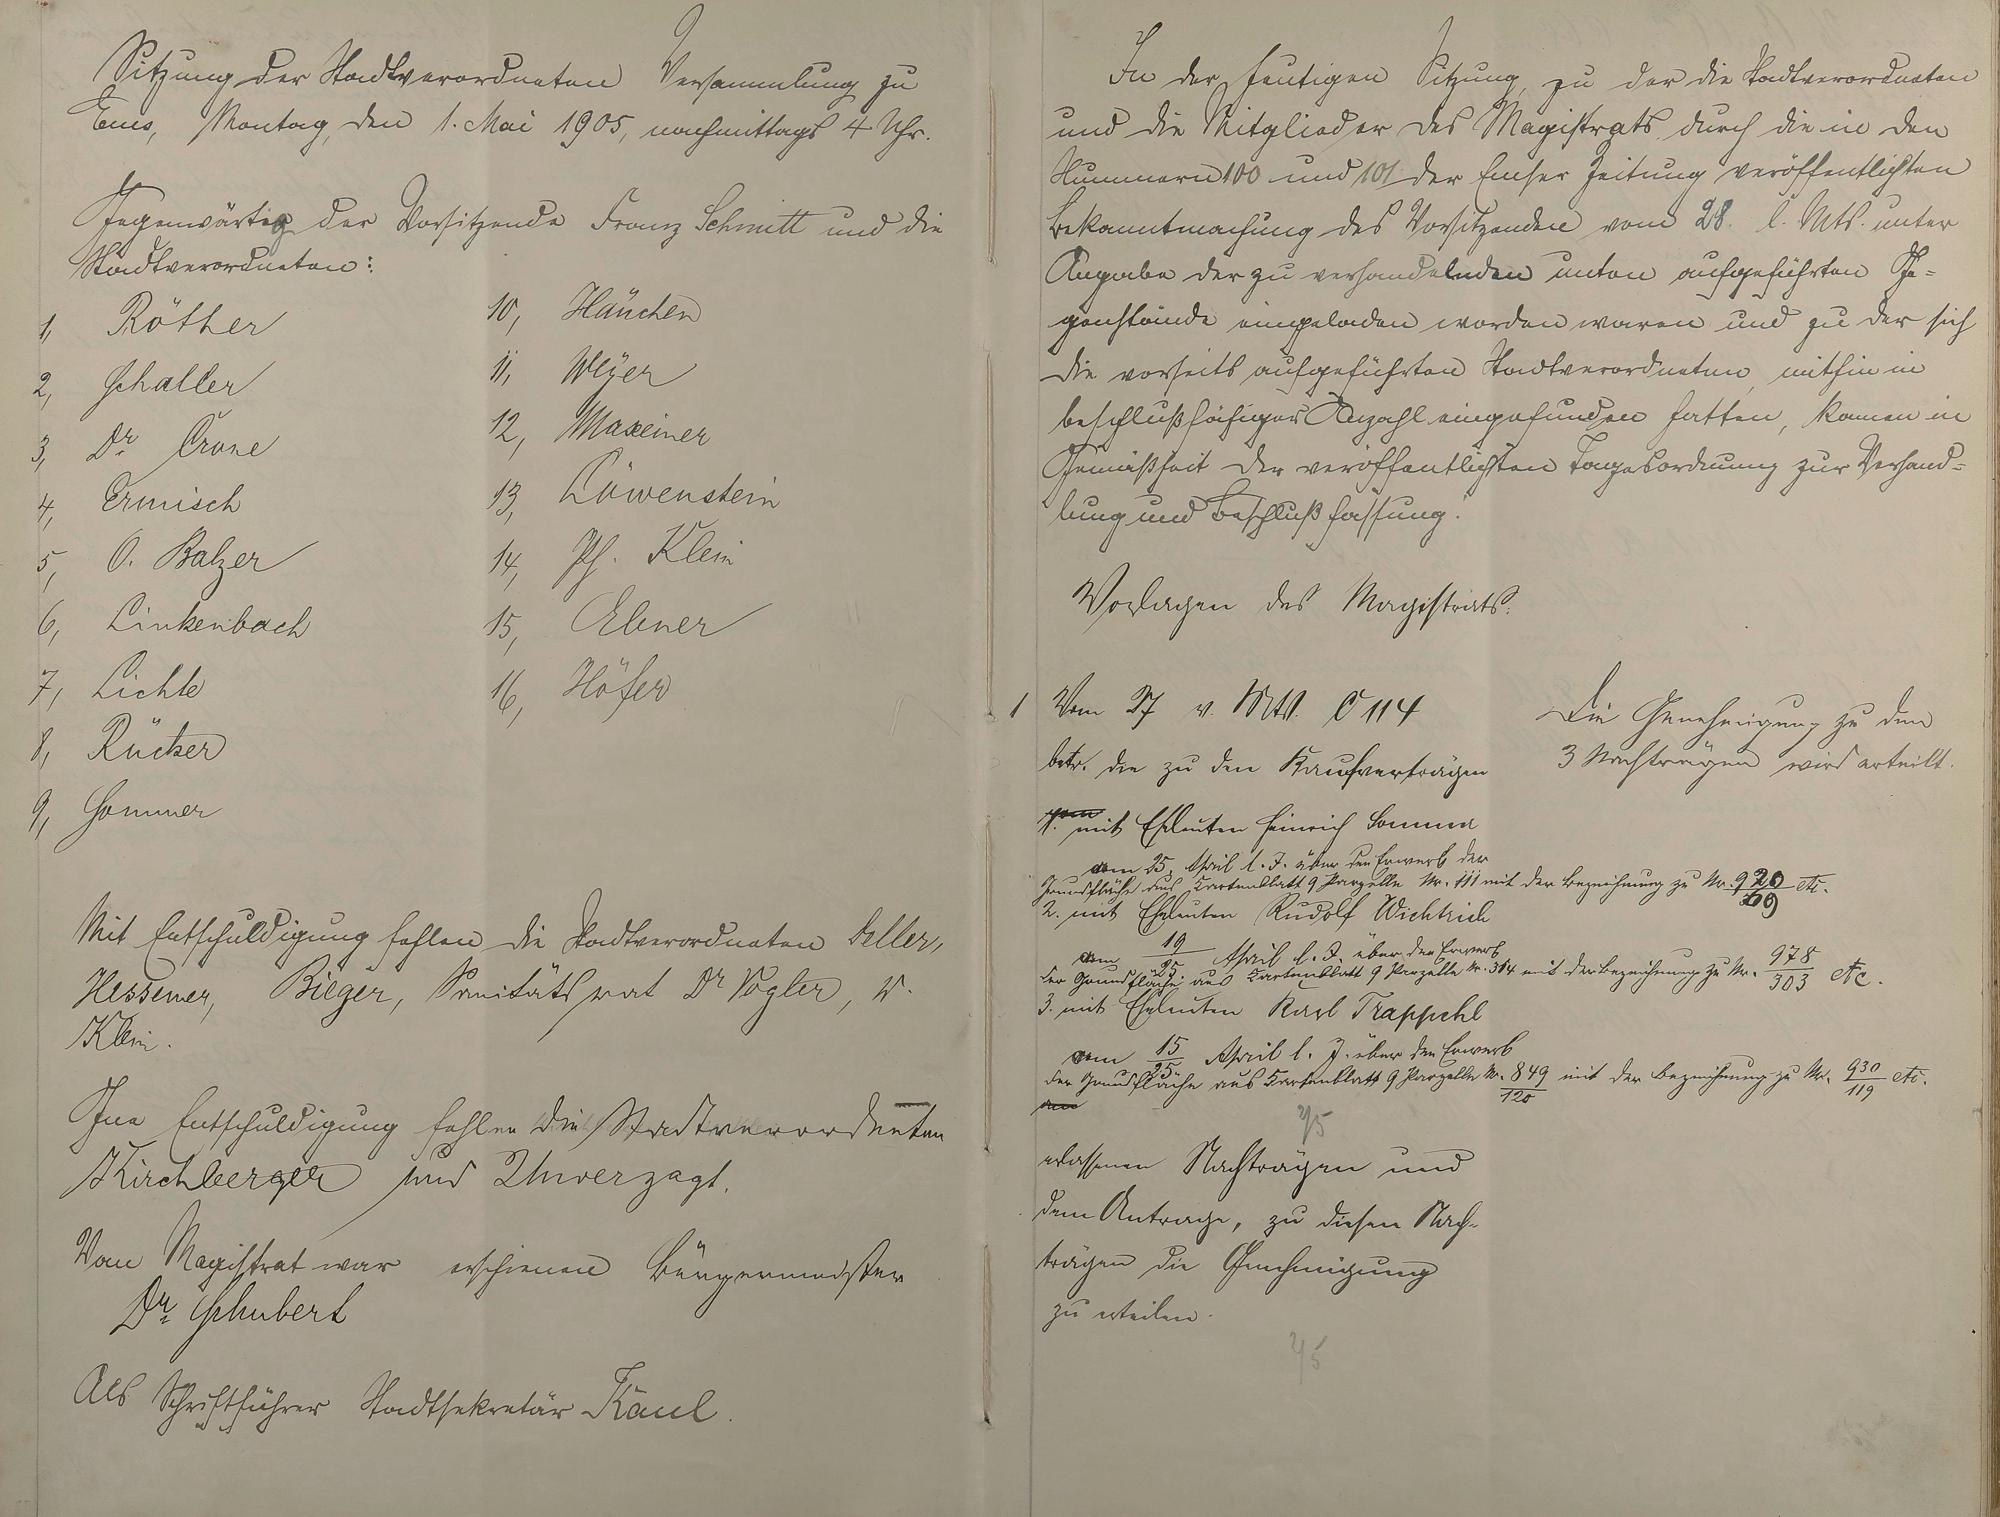 Sitzung der Stadtverordneten Versammlung zu
Ems, Montag, den 1. Mai 1905, nachmittags 4 Uhr.
Gegenwärtig der Vorsitzende Franz Schmitt und die
Stadtverordneten:
1, Röther
2, Schaller
3, Dr. Crone
4, Ermisch
5, O. Balzer
6, Linkenbach
7, Lichte
8, Rücker
9, Sommer
10, Häuchen
11, Weyer
12, Maxeiner
13, Löwenstein
14, Ph. Klein
15, Ebner
16, Höfer
Mit Entschuldigung fehlen die Stadtverordneten Seller,
Hessemer, Bieger, Sanitätsrat Dr Vogler, W.
Klein.
Ohne Entschuldigung fehlen die Stadtverordneten
Kirchberger und Unverzagt.
Vom Magistrat war erschienen Bürgermeister
Dr. Schubert
Als Schriftführer Stadtsekretär Kaul.
In der heutigen Sitzung, zu der die Stadtverordneten
und die Mitglieder des Magistrats durch die in den
Nummern 100 und 101 der Emser Zeitung veröffentlichten
Bekanntmachung des Vorsitzenden vom 28. l. Mts. unter
Angabe der zu verhandelnden unten aufgeführten Ge-
genstände eingeladen worden waren und zu der sich
die vorseits aufgeführten Stadtverordneten, mithin in
beschlußfähiger Anzahl eingefunden hatten, kamen in
Gemäßheit der veröffentlichten Tagesordnung zur Verhand-
lung und Beschlußfassung.
Vorlagen des Magistrats:
1 Vom 27 v. Mts. C 114
betr. die zu den Kaufverträgen
1. mit Eheleuten Heinrich Sommer
vom 25. April l. J. über den Erwerb der
Grundfläche aus Kartenblatt 9 Parzelle Nr. 111 mit der Bezeichnung zu Nr. 920/69 etc.
2. mit Eheleuten Rudolf Wichtrich
vom 19/25. April l. J. über den Erwerb
der Grundfläche aus Kartenblatt 9 Parzelle Nr. 314 mit der Bezeichnung zu Nr. 978/303 etc.
3. mit Eheleuten Karl Trappehl
vom 15/25. April l. J. über den Erwerb
der Grundfläche aus Kartenblatt 9 Parzelle Nr. 849/120 mit der Bezeichnung zu Nr. 930/119 etc.
2/5
erlassenen Nachträgen und
dem Antrage, zu diesen Nach-
trägen die Genehmigung
zu erteilen.
2/5
Die Genehmigung zu den
3 Nachträgen wird erteilt.